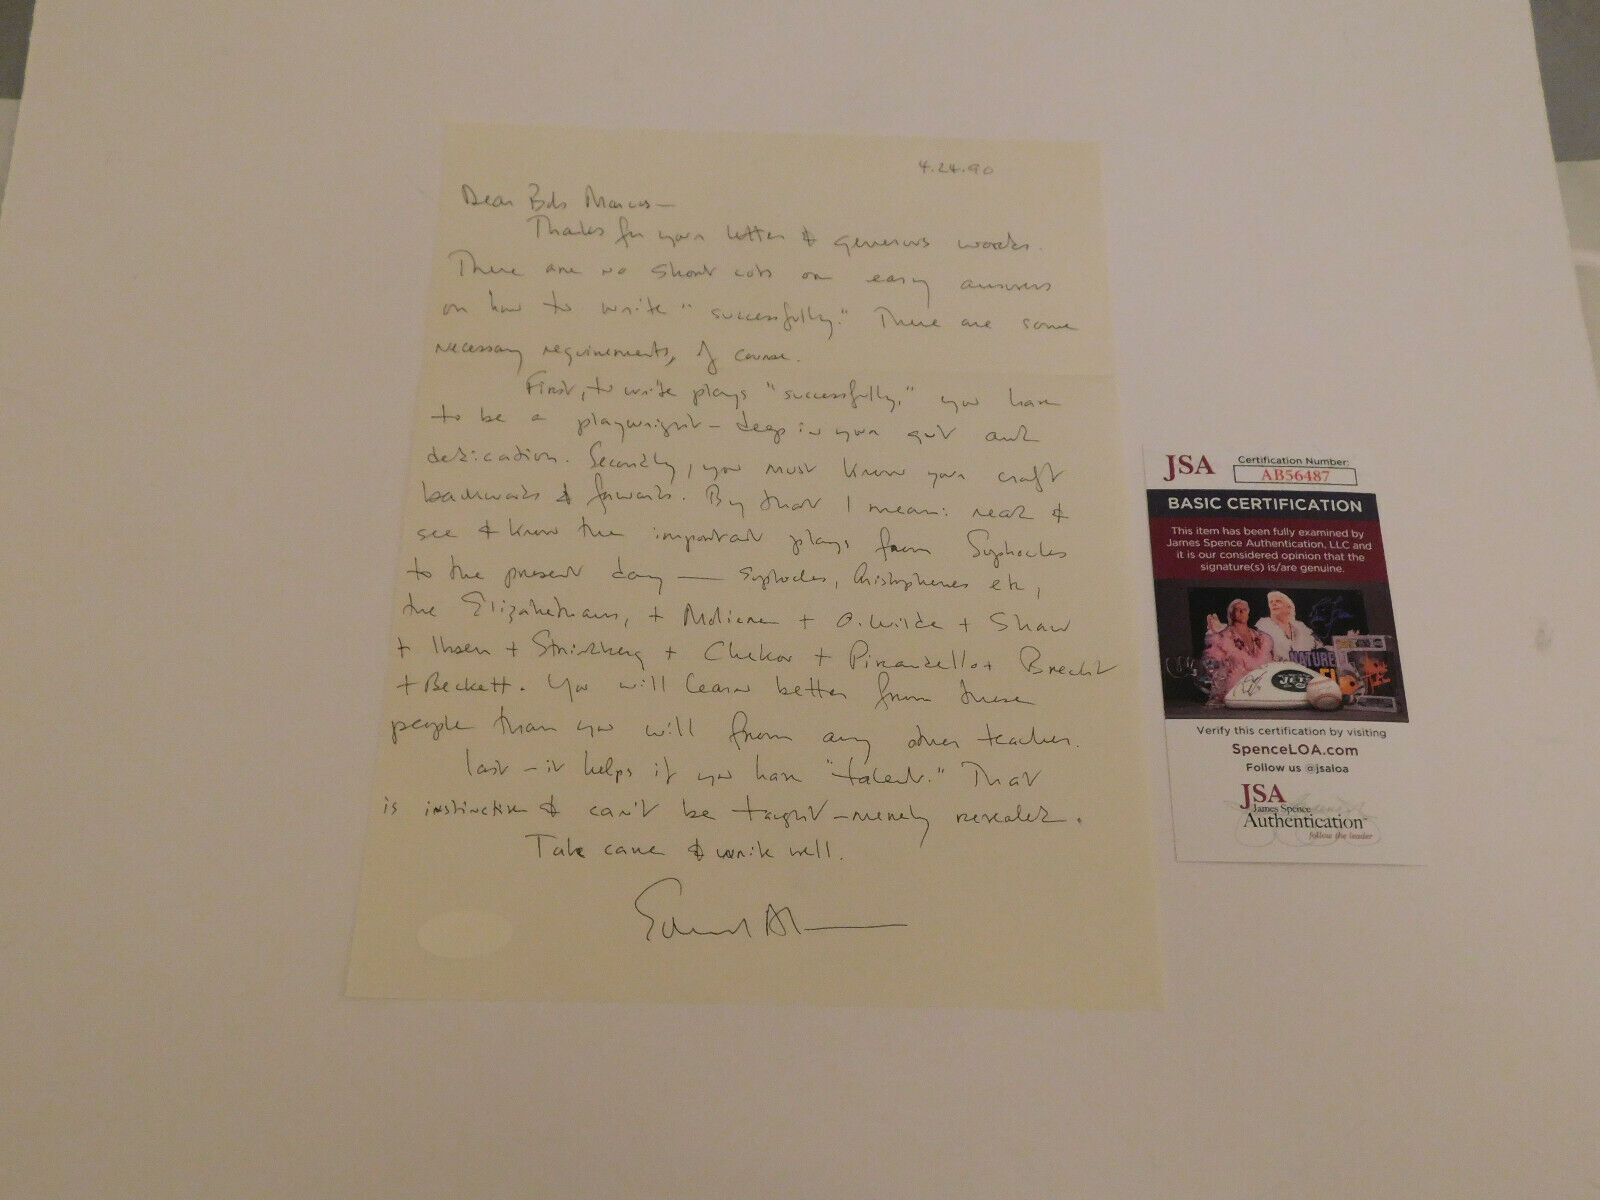 4.24.90
Dear Bob Marcus—
Thanks for your letter & generous words.
There are no short cuts or easy answers
on how to write "successfully." There are some
necessary requirements, of course.
First, to write plays "successfully," you have
to be a playwright — deep in your gut and
dedication. Secondly, you must know your craft
backwards & forwards. By that I mean: read &
see & know the important plays from Sophocles
to the present day — Sophocles, Aristophenes etc,
the Elizabethans, + Moliere + O. Wilde + Shaw
+ Ibsen + Strindberg + Chekov + Pirandello + Brecht
+ Beckett. You will learn better from these
people than you will from any other teacher.
Last — it helps if you have "talent." That
is instinctive & can't be taught — merely revealed.
Take care & write well.
Edward Albee
JSA
Certification Number:
AB56487
BASIC CERTIFICATION
This item has been fully examined by
James Spence Authentication, LLC and
it is our considered opinion that the
signature(s) is/are genuine.
NATURE
JETS
Verify this certification by visiting
SpenceLOA.com
Follow us @jsaloa
JSA
James Spence
Authentication
follow the leader